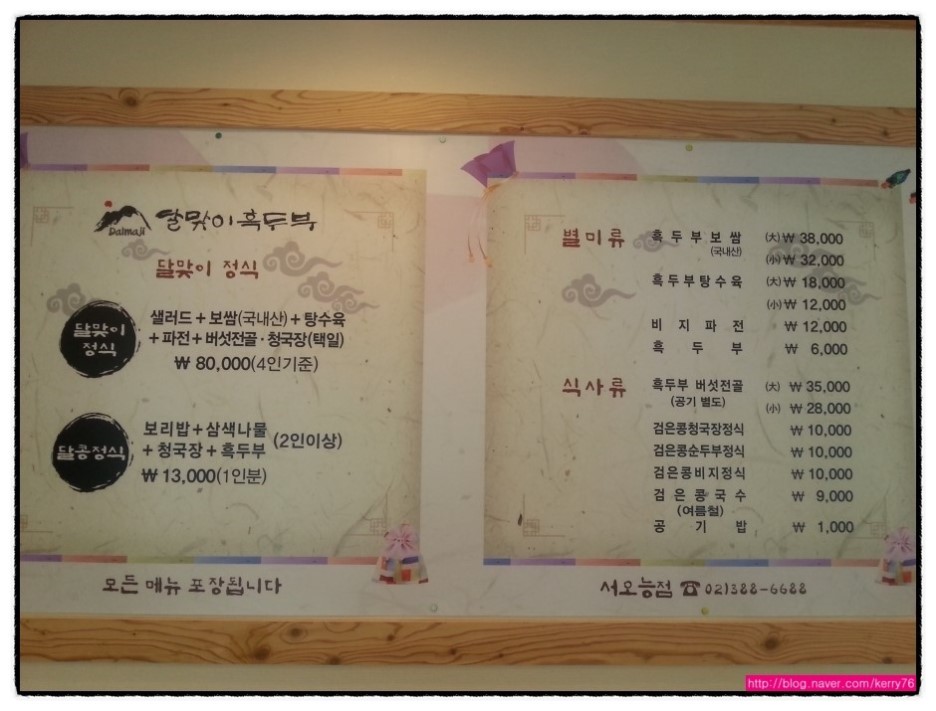 Dalmaji
달맞이흑두부
달맞이 정식
달맞이
정식
샐러드 + 보쌈(국내산) + 탕수육
+ 파전 + 버섯전골 · 청국장(택일)
₩ 80,000(4인기준)
달콩정식
보리밥 + 삼색나물
+ 청국장 + 흑두부
(2인이상)
₩ 13,000(1인분)
모든 메뉴 포장됩니다
별미류
흑두부보쌈 (大) ₩ 38,000
(국내산)
(小) ₩ 32,000
흑두부탕수육 (大) ₩ 18,000
(小) ₩ 12,000
비지파전 ₩ 12,000
흑두부 ₩ 6,000
식사류
흑두부 버섯전골 (大) ₩ 35,000
(공기 별도)
(小) ₩ 28,000
검은콩청국장정식 ₩ 10,000
검은콩순두부정식 ₩ 10,000
검은콩비지정식 ₩ 10,000
검은콩국수 ₩ 9,000
(여름철)
공기밥 ₩ 1,000
서오능점 ☎ 02)388-6688
http://blog.naver.com/kerry76